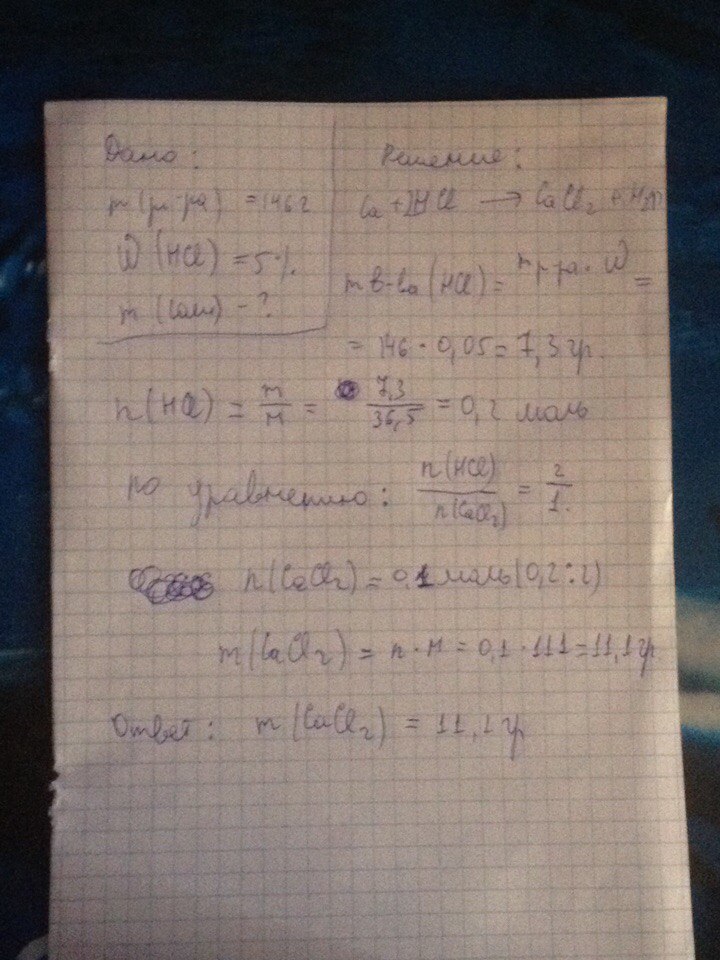 Дано:
m(р-ра) = 146 г
W(HCl) = 5%
m (соли) - ?
Решение:
Ca + 2HCl → CaCl₂ + H₂↑
m в-ва (HCl) = m р-ра · W =
= 146 · 0,05 = 7,3 гр.
n(HCl) = m/M = 7,3/36,5 = 0,2 моль
по уравнению: n(HCl)/n(CaCl₂) = 2/1.
n(CaCl₂) = 0,1 моль (0,2:2)
m(CaCl₂) = n · M = 0,1 · 111 = 11,1 гр
Ответ: m(CaCl₂) = 11,1 гр